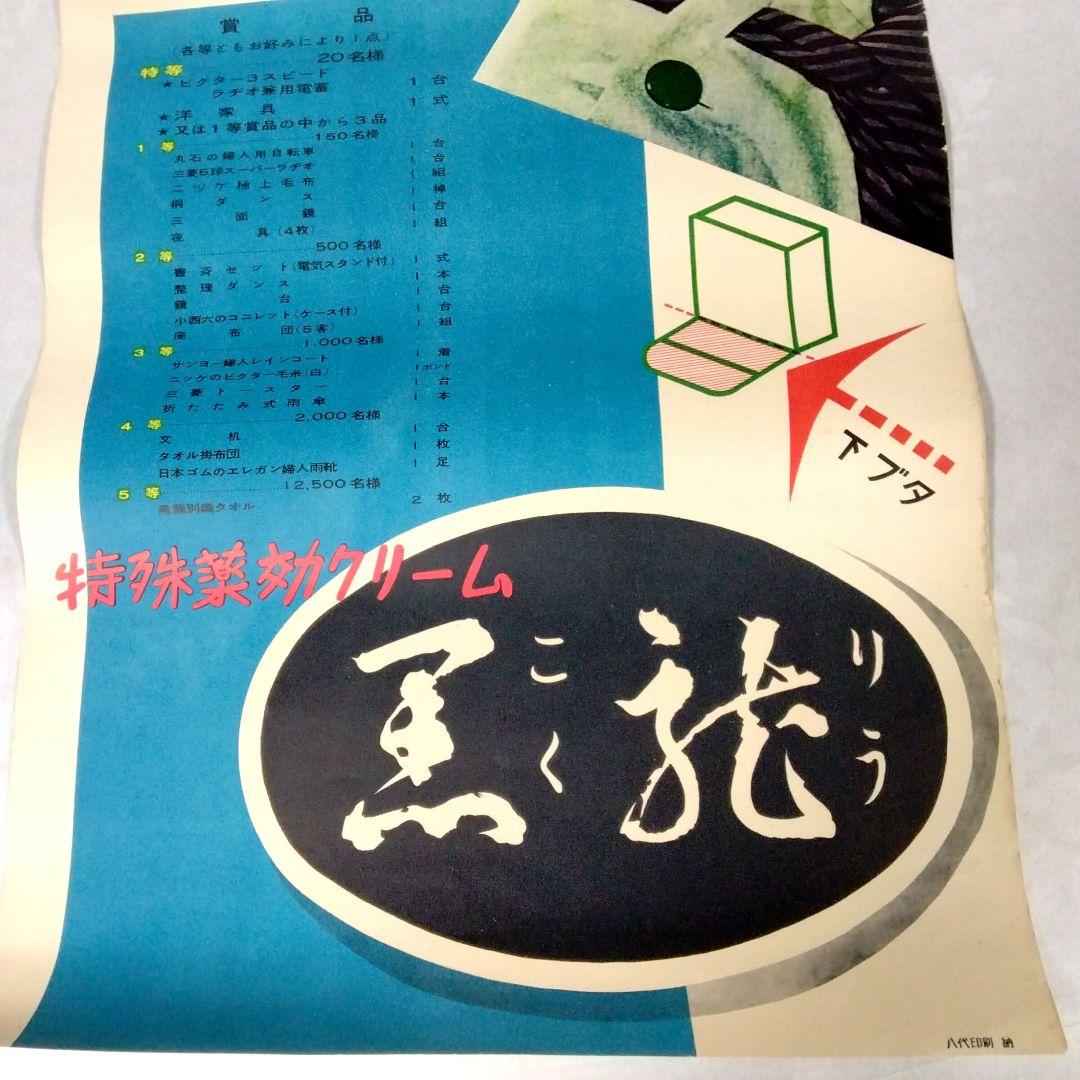 賞品
(各等ともお好みにより1点)
特等 20名様
★ビクター3スピード
ラヂオ兼用電蓄 1台
★洋家具 1式
★又は1等賞品の中から3品
1等 150名様
丸石の婦人用自転車 1台
三菱6球スーパーラヂオ 1台
ニッケ極上毛布 1組
桐ダンス 1棹
三面鏡 1台
夜具(4枚) 1組
2等 500名様
書斉セット(電気スタンド付) 1式
整理ダンス 1本
鏡台 1台
小西六のコニレット(ケース付) 1台
座布団(5客) 1組
3等 1,000名様
サンヨー婦人レインコート 1着
ニッケのビクター毛糸(白) 1ポンド
三菱トースター 1台
折たたみ式雨傘 1本
4等 2,000名様
文机 1台
タオル掛布団 1枚
日本ゴムのエレガン婦人雨靴 1足
5等 12,500名様
黒龍別織タオル 2枚
下ブタ
特殊薬効クリーム
黒龍
こくりう
八代印刷 納